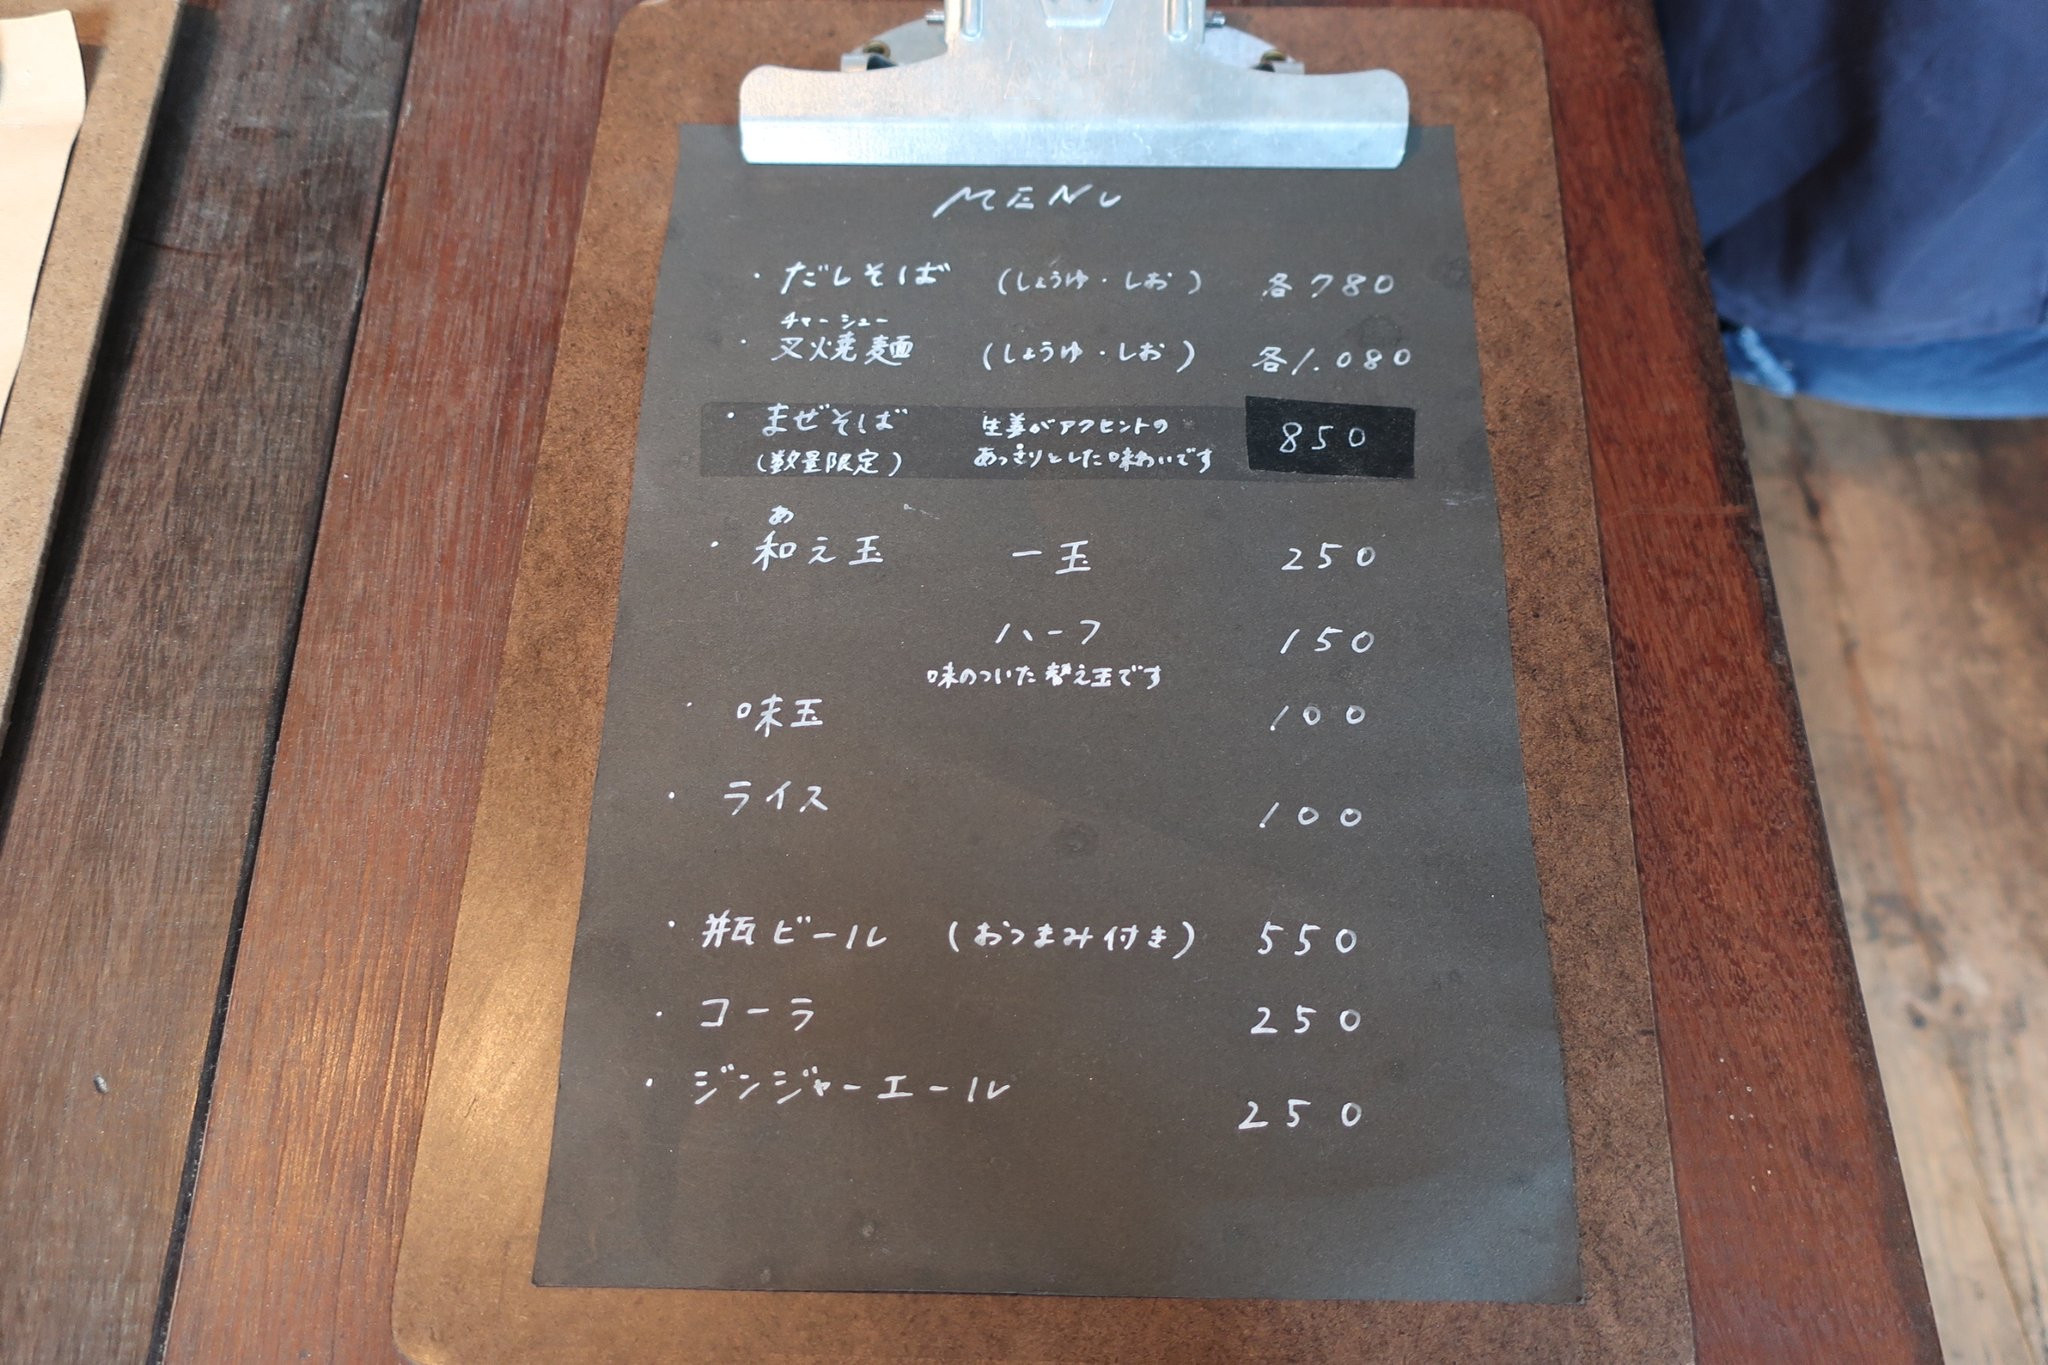 MENU
・だしそば (しょうゆ・しお) 各780
チャーシュー
・叉焼麺 (しょうゆ・しお) 各1.080
・まぜそば 生姜がアクセントの 850
(数量限定) あっさりとした味わいです
あ
・和え玉 一玉 250
ハーフ 150
味のついた替え玉です
・味玉 100
・ライス 100
・瓶ビール (おつまみ付き) 550
・コーラ 250
・ジンジャーエール 250